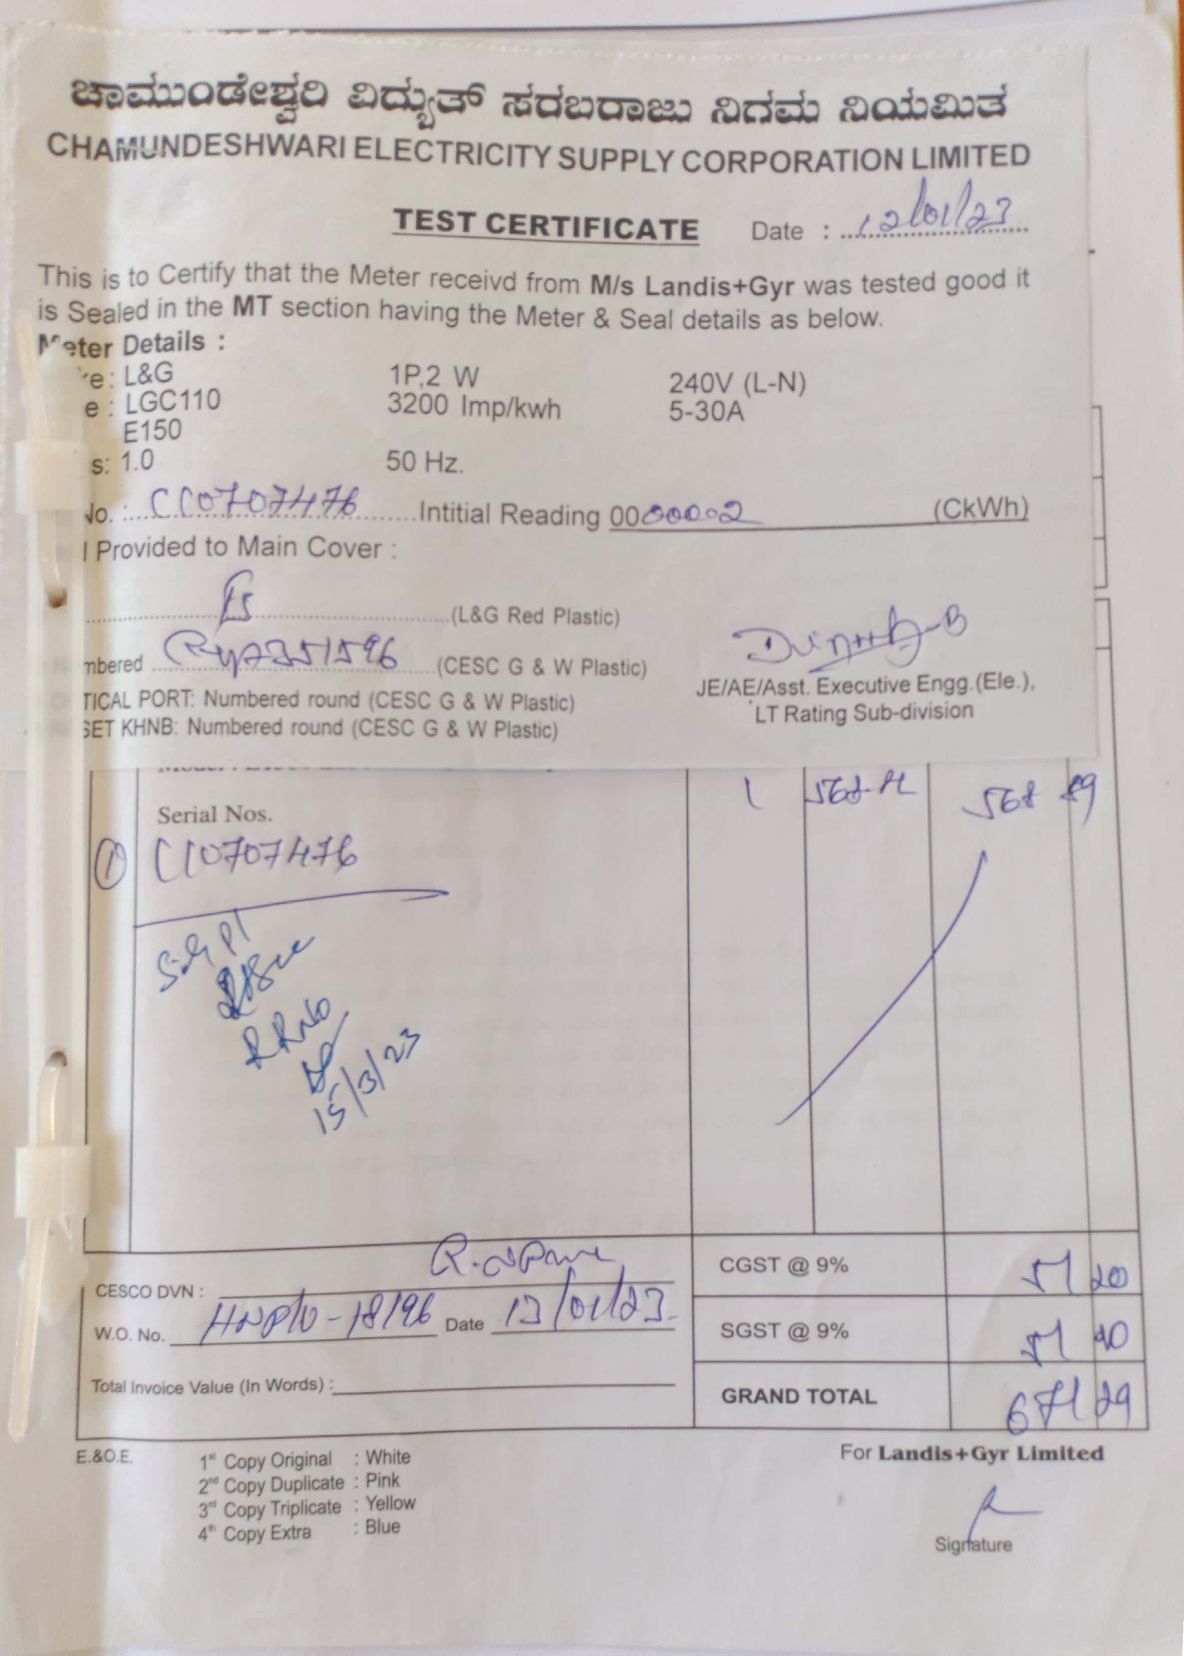 ಚಾಮುಂಡೇಶ್ವರಿ ವಿದ್ಯುತ್ ಸರಬರಾಜು ನಿಗಮ ನಿಯಮಿತ
CHAMUNDESHWARI ELECTRICITY SUPPLY CORPORATION LIMITED
TEST CERTIFICATE Date : 12/01/23
This is to Certify that the Meter receivd from M/s Landis+Gyr was tested good it
is Sealed in the MT section having the Meter & Seal details as below.
Meter Details :
e: L&G 1P,2 W 240V (L-N)
e : LGC110 3200 Imp/kwh 5-30A
E150
s: 1.0 50 Hz.
No. : CC0707476 Intitial Reading 00 00002 (CkWh)
l Provided to Main Cover :
(L&G Red Plastic)
mbered (CESC G & W Plastic)
TICAL PORT: Numbered round (CESC G & W Plastic)
SET KHNB: Numbered round (CESC G & W Plastic)
JE/AE/Asst. Executive Engg.(Ele.),
LT Rating Sub-division
1 568 89
Serial Nos.
① CC0707476
RRNo
15/3/23
CESCO DVN :
W.O. No. 18/96 Date 13/01/23
Total Invoice Value (In Words) :
CGST @ 9% 51 20
SGST @ 9% 51 20
GRAND TOTAL 671 29
E.&O.E.
1st Copy Original : White
2nd Copy Duplicate : Pink
3rd Copy Triplicate : Yellow
4th Copy Extra : Blue
For Landis+Gyr Limited
Signature